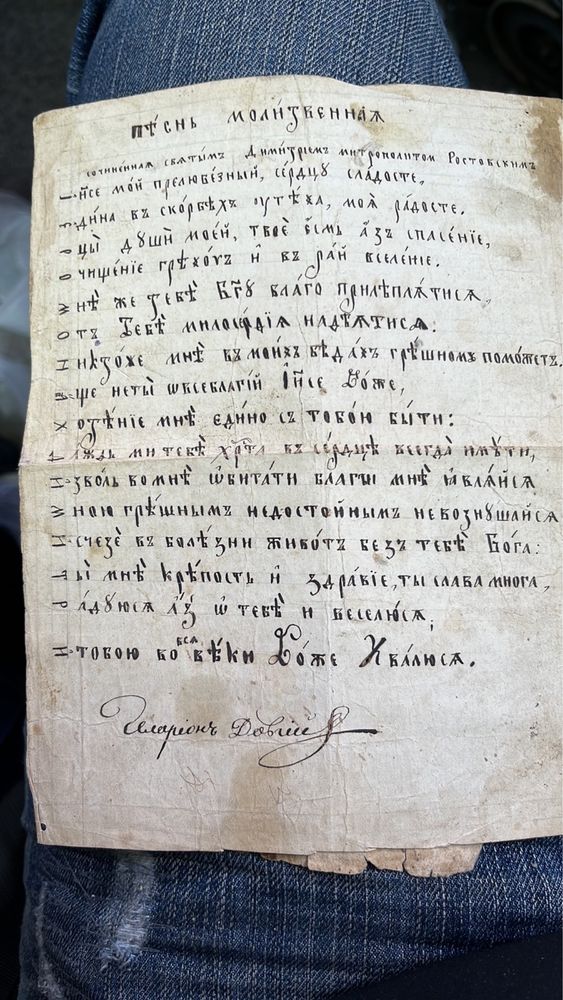 пѣ́снь молитвенная
сочиненная святымъ Димитріемъ митрополитом Ростовскимъ
І҆и҃се мо́й прелюбе́зный, се́рдцу сладосте,
Еди́на въ ско́рбѣхъ утѣ́ха, моя̀ ра́досте.
Рцы̀ души̂ мое́й, твоѐ е҆́смь а҆́зъ спасе́нїе,
Очище́нїе грѣхо́въ и҆ въ ра́й вселе́нїе.
Мнѣ́ же тебѣ̀ Бг҃у благо прилѣпля́тися,
Отъ Тебѐ милосе́рдїя надѣ́ятися:
Никто́же мнѣ̀ въ мои́хъ бѣда́хъ грѣ́шному помо́жетъ.
Аще не ты̀ ѡ всеблагі́й І҆и҃се Бо́же,
Хотѣ́нїе мнѣ̀ еди́но съ тобо́ю бы́ти:
Даждь ми тебѐ хр҃та̀ въ се́рдцѣ всегда̀ имѣ́ти,
Изволь во мнѣ̀ ѡбита́ти благъ мнѣ̀ ꙗвля́йся
Мною грѣ́шнымъ недосто́йнымъ не возгнуша́йся
Исчезѐ въ болѣ́зни живо́тъ безъ тебѐ Бо́га:
Ты̀ мнѣ̀ крѣ́пость и҆ здра́вїе, ты слава многа,
Ра́дуюся а҆́зъ ѡ тебѣ̀ и веселю́ся,
И тобою во вся вѣ́ки Бо́же Хвалю́ся.
Иларіонъ